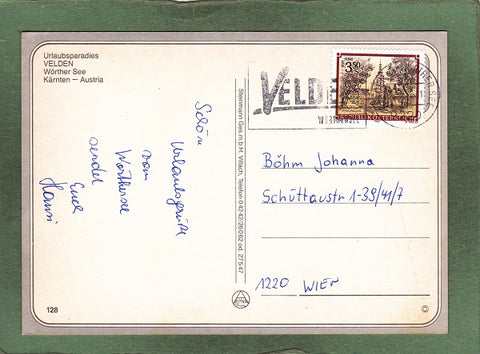 Urlaubsparadies
VELDEN
Wörther See
Kärnten — Austria
Schön
Urlaubsgrüße
vom
Wörthersee
sendet
Euch
Hansi
Steinmann Ges.m.b.H. Villach, Telefon 0 42 42/26 0 62 od. 27 5 47
VELDEN
3.50
REPUBLIK ÖSTERREICH
Böhm Johanna
Schüttaustr 1-39/41/7
1220 WIEN
128
©